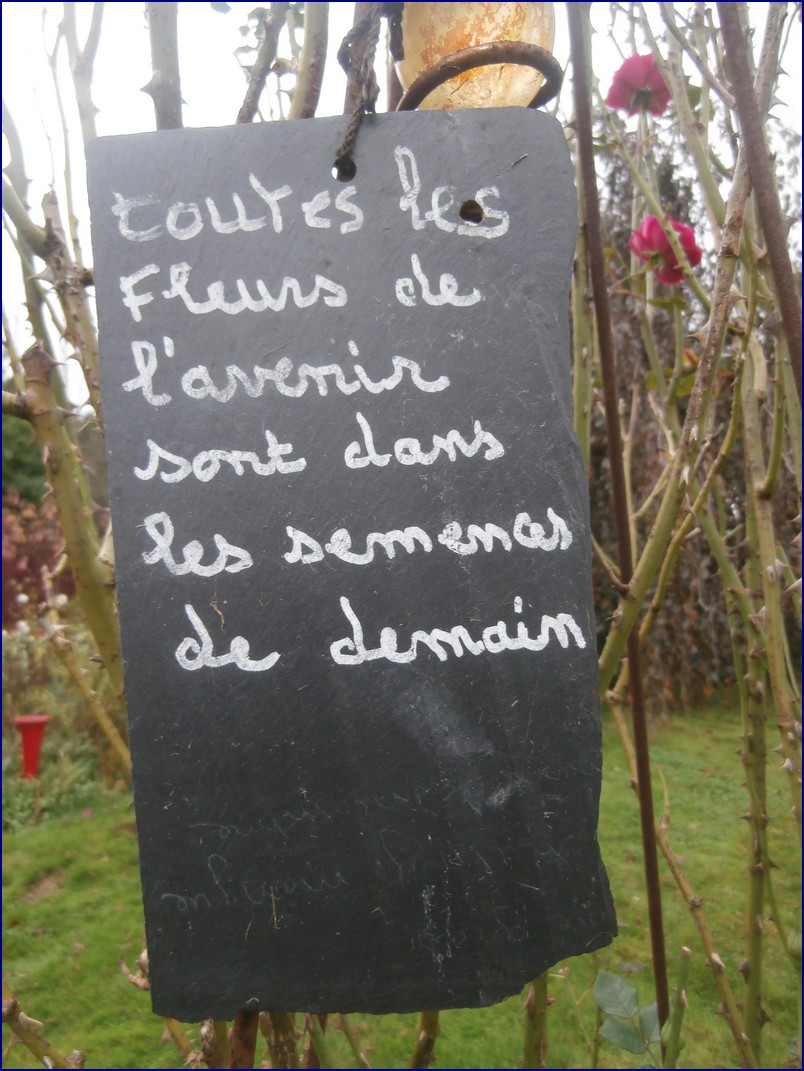 toutes les
Fleurs de
l'avenir
sont dans
les semences
de demain